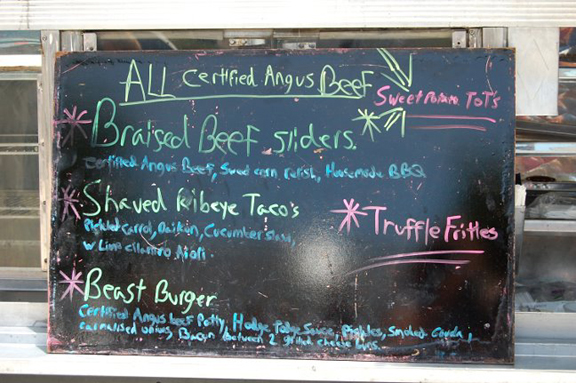 ALL Certified Angus Beef
Sweet Potato ToTs
Braised Beef sliders.
Certified Angus Beef, Sweet corn relish, Housemade BBQ
Shaved Ribeye Taco's
Pickled Carrot, Daikon, Cucumber Slaw,
w Lime cilantro Aioli.
Truffle Frites
Beast Burger
Certified Angus beef Patty, Hodge Podge Sauce, Pickles, Smoked Gouda,
caramalised onions, Bacon between 2 grilled cheese buns.